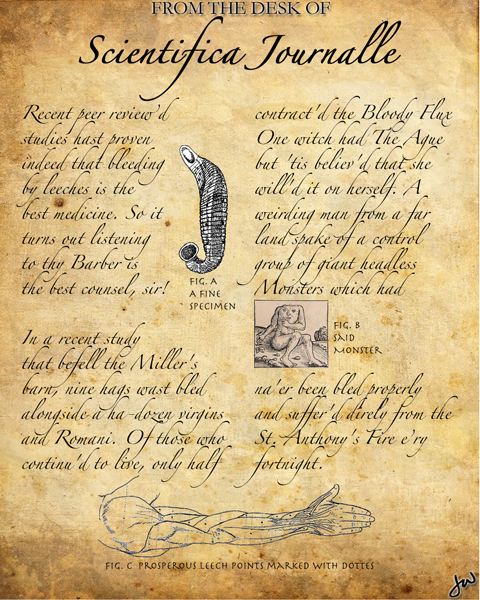 FROM THE DESK OF
Scientifica Journalle
Recent peer review'd
studies hast proven
indeed that bleeding
by leeches is the
best medicine. So it
turns out listening
to thy Barber is
the best counsel, sir!
FIG. A
A FINE
SPECIMEN
In a recent study
that befell the Miller's
barn, nine hags wast bled
alongside a ha-dozen virgins
and Romani. Of those who
continu'd to live, only half
contract'd the Bloody Flux
One witch had The Ague
but 'tis believ'd that she
will'd it on herself. A
weirding man from a far
land spake of a control
group of giant headless
Monsters which had
FIG. B
SAID
MONSTER
na'er been bled properly
and suffer'd direly from the
St. Anthony's Fire e'ry
fortnight.
FIG. C PROSPEROUS LEECH POINTS MARKED WITH DOTTES
JW